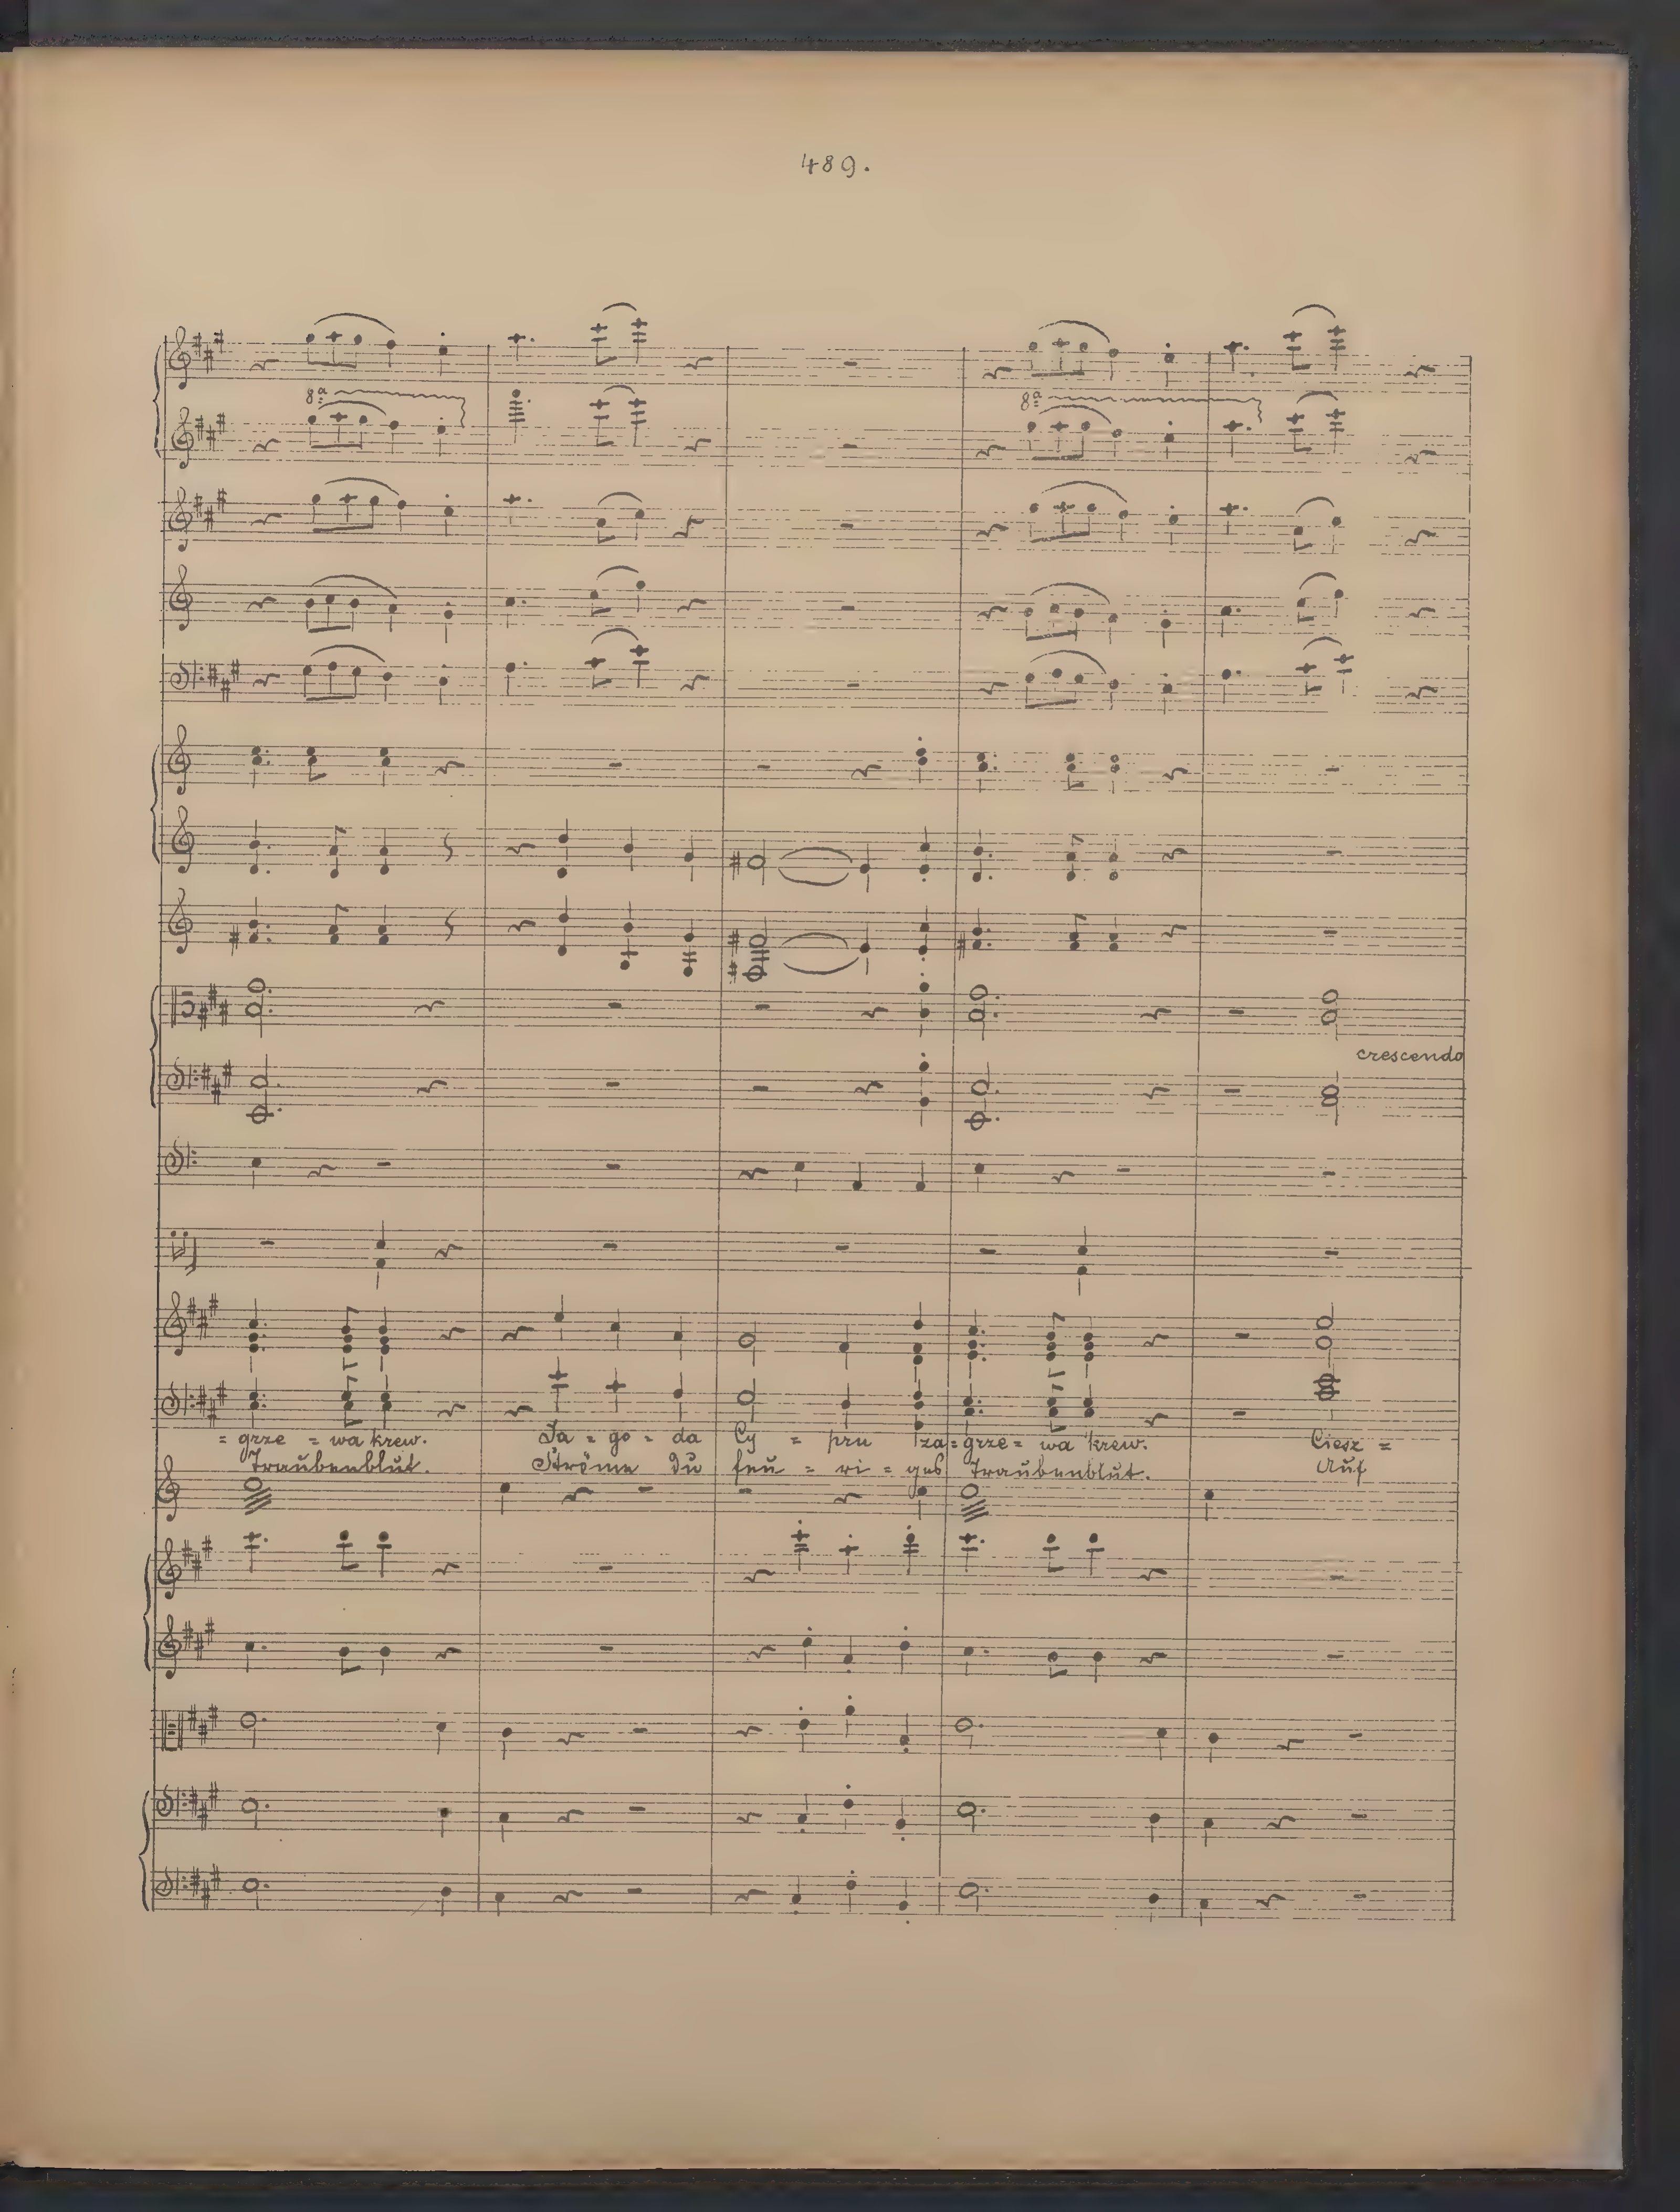 489.
8ª 8ª
crescendo
= grze = wa krew. Ja = go = da Cy = pru za = grze = wa krew. Ciesz =
Traubenblut. Ströme du feu = ri = ges Traubenblut. Auf